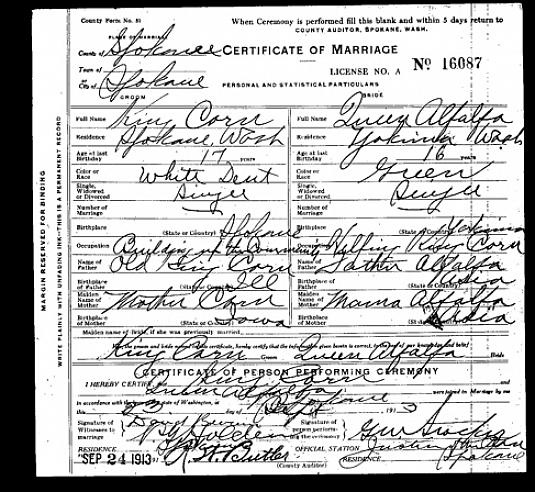 County Form No. 51
When Ceremony is performed fill this blank and within 5 days return to
COUNTY AUDITOR, SPOKANE, WASH.
PLACE OF MARRIAGE
County of Spokane
CERTIFICATE OF MARRIAGE
Town of
LICENSE NO. A No 16087
City of Spokane
PERSONAL AND STATISTICAL PARTICULARS
GROOM BRIDE
Full Name King Corn Full Name Queen Alfalfa
Residence Spokane, Wash Residence Yakima Wash
Age at last Birthday 17 years Age at last Birthday 16 years
Color or Race White Dent Color or Race Green
Single, Widowed or Divorced Single Single, Widowed or Divorced Single
Number of Marriage Number of Marriage
Birthplace (State or Country) Spokane Birthplace (State or Country) Yakima
Occupation Building up the Community Occupation Helping King Corn
Name of Father Old King Corn Name of Father Father Alfalfa
Birthplace of Father (State or Country) Ill Birthplace of Father India
Maiden Name of Mother Mother Corn Maiden Name of Mother Mama Alfalfa
Birthplace of Mother (State or Country) Iowa Birthplace of Mother India
Maiden name of bride, if she was previously married
King Corn Groom Queen Alfalfa Bride
CERTIFICATE OF PERSON PERFORMING CEREMONY
I HEREBY CERTIFY, that King Corn and
Queen Alfalfa were joined in Marriage by me
in accordance with the laws of the State of Washington, at Spokane
this 23 day of Sept 1913
Signature of Witnesses to marriage
Signature of person performing the ceremony
RESIDENCE Spokane OFFICIAL STATION
SEP 24 1913 R. W. Butler RESIDENCE Spokane
(County Auditor)
MARGIN RESERVED FOR BINDING
WRITE PLAINLY WITH UNFADING INK—THIS IS A PERMANENT RECORD